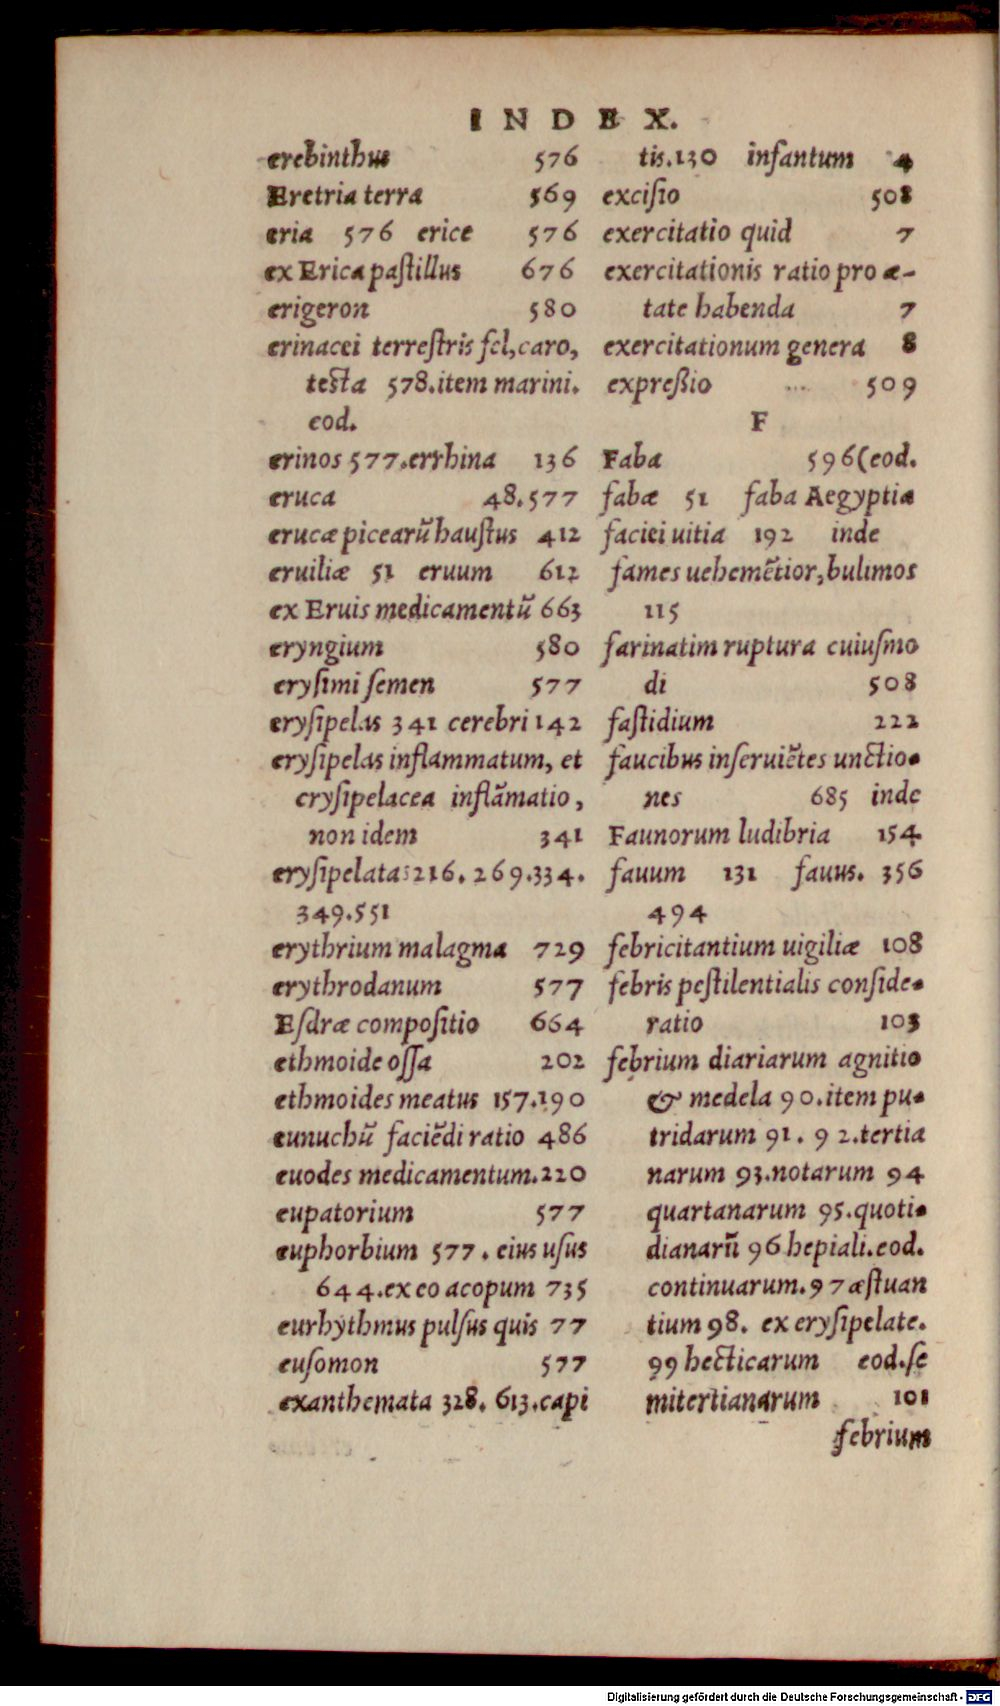 INDEX.
erebinthus 576
Eretria terra 569
eria 576 erice 576
ex Erica paſtillus 676
erigeron 580
erinacei terreſtris fel, caro,
teſta 578. item marini.
eod.
erinos 577. errhina 136
eruca 48. 577
erucæ picearũ hauſtus 412
eruiliæ 51 eruum 612
ex Eruis medicamentũ 663
eryngium 580
eryſimi ſemen 577
eryſipelas 341 cerebri 142
eryſipelas inflammatum, et
eryſipelacea inflãmatio,
non idem 341
eryſipelata 216. 269. 334.
349. 551
erythrium malagma 729
erythrodanum 577
Eſdræ compoſitio 664
ethmoide oſſa 202
ethmoides meatus 157. 190
eunuchũ faciẽdi ratio 486
euodes medicamentum. 220
eupatorium 577
euphorbium 577. eius uſus
644. ex eo acopum 735
eurhythmus pulſus quis 77
euſomon 577
exanthemata 328. 613. capi
tis. 130 infantum 4
exciſio 508
exercitatio quid 7
exercitationis ratio pro æ-
tate habenda 7
exercitationum genera 8
expreßio 509
F
Faba 596 (eod.
fabæ 51 faba Aegyptia
faciei uitia 192 inde
fames uehemẽtior, bulimos
115
farinatim ruptura cuiuſmo
di 508
faſtidium 222
faucibus inſeruiẽtes unctio-
nes 685 inde
Faunorum ludibria 154
fauum 131 fauus. 356
494
febricitantium uigiliæ 108
febris peſtilentialis conſide-
ratio 103
febrium diariarum agnitio
& medela 90. item pu-
tridarum 91. 92. tertia
narum 93. notarum 94
quartanarum 95. quoti-
dianarũ 96 hepiali. eod.
continuarum. 97 æſtuan
tium 98. ex eryſipelate.
99 hecticarum eod. ſe
mitertianarum 101
febrium
Digitalisierung gefördert durch die Deutsche Forschungsgemeinschaft - DFG